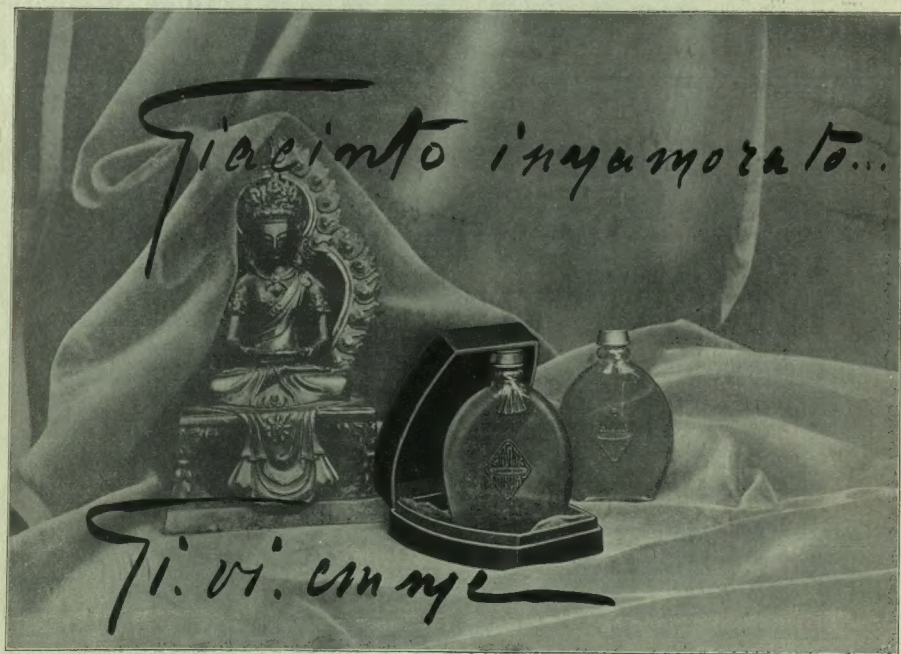 Giacinto innamorato...
Gi. vi. emme